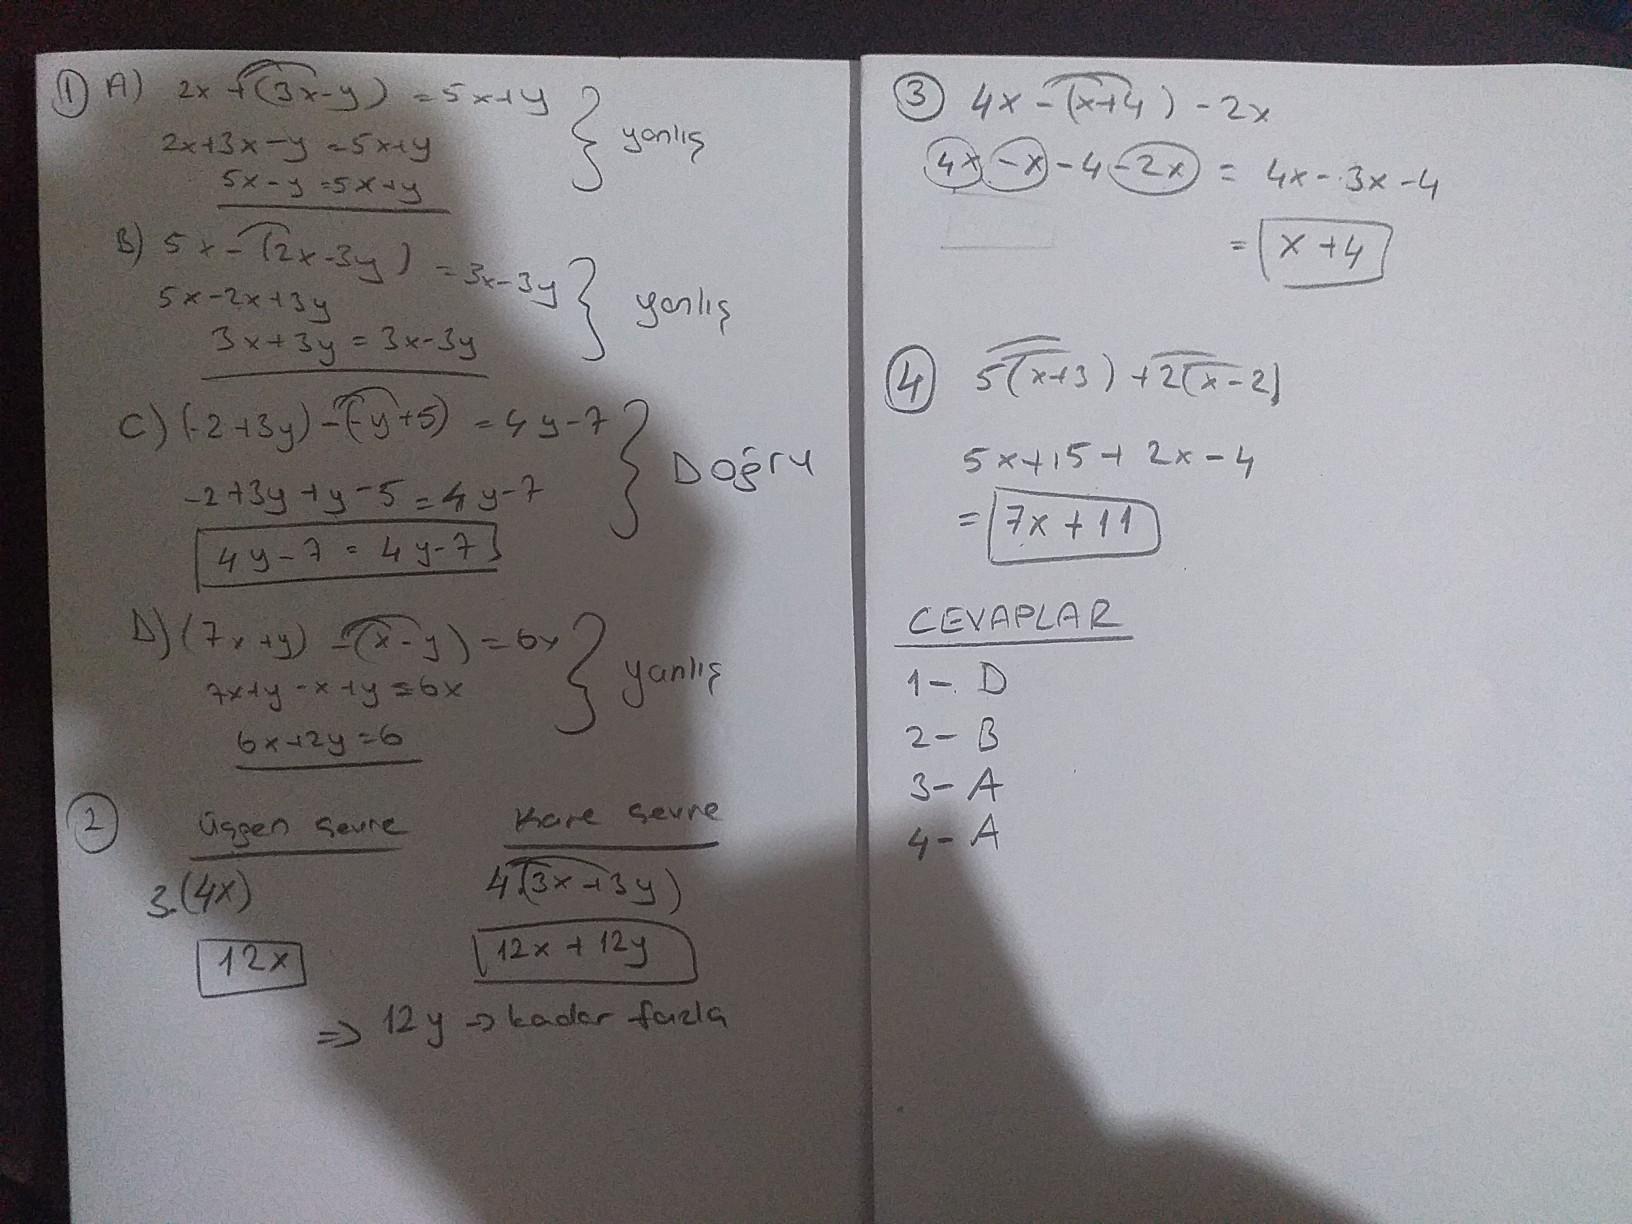 ① A) 2x + (3x - y) = 5x + y
2x + 3x - y = 5x + y
5x - y = 5x + y
yanlış
B) 5x - (2x - 3y) = 3x - 3y
5x - 2x + 3y
3x + 3y = 3x - 3y
yanlış
C) (-2 + 3y) - (-y + 5) = 4y - 7
-2 + 3y + y - 5 = 4y - 7
4y - 7 = 4y - 7
Doğru
D) (7x + y) - (x - y) = 6x
7x + y - x + y = 6x
6x + 2y = 6
yanlış
② Üçgen çevre Kare çevre
3.(4x) 4.(3x + 3y)
12x 12x + 12y
⇒ 12y → kadar fazla
③ 4x - (x + 4) - 2x
4x - x - 4 - 2x = 4x - 3x - 4
= x + 4
④ 5(x + 3) + 2(x - 2)
5x + 15 + 2x - 4
= 7x + 11
CEVAPLAR
1- D
2- B
3- A
4- A